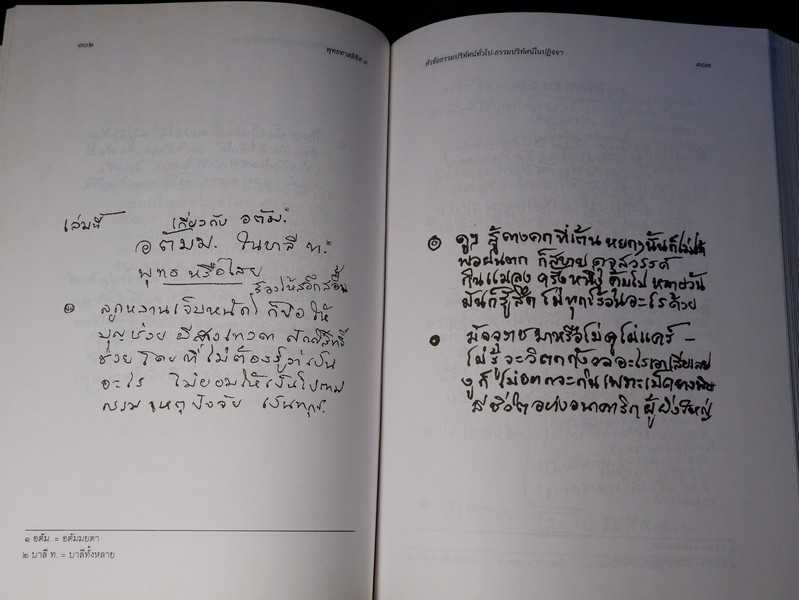 ๓๐๒
พุทธทาสลิขิต ๓
เล่มนี้ เกี่ยวกับ อตัม.๑
อตัมม. ในบาลี ท.๒
พุทธ หรือไสย
ร้องให้สอึกสอื้น
ลูกหลานเจ็บหนัก ก็ขอให้
บุญช่วย ผีสางเทวดา สิ่งศักดิ์สิทธิ์
ช่วย โดยที่ไม่ต้องรู้ว่าเป็น
อะไร ไม่ยอมให้เป็นไปตาม
กรรม เหตุปัจจัย เป็นทุกข์.
๑ อตัม. = อตัมมยตา
๒ บาลี ท. = บาลีทั้งหลาย
หัวข้อธรรมปริทัศน์ทั่วไป-ธรรมปริทัศน์ในปฏิจจฯ
๓๐๓
ดูๆ สู้คางคกที่เต้น หยกๆนั้นก็ไม่ได้
พอฝนตก ก็สบาย ดุจสวรรค์
กินแมลง ครั้งหนึ่ง คุ้มไป หลายวัน
มันก็รู้สึก ไม่ทุกข์ร้อนอะไรด้วย
มัจจุราช มาหรือไม่ ดูไม่แคร์ –
ไม่รู้จะวิตกกังวลอะไรเอาเสียเลย
งูก็ไม่อยากจะกินเพราะเม็ดยางพิษ
ชีวิตอย่างอนาคาริก ผู้ยิ่งใหญ่